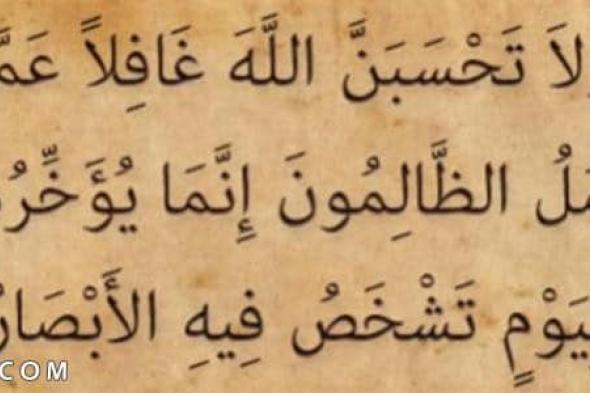 وَلاَ تَحْسَبَنَّ اللَّهَ غَافِلاً عَمَّ
مَلُ الظَّالِمُونَ إِنَّمَا يُؤَخِّرُهُ
لِيَوْمٍ تَشْخَصُ فِيهِ الأَبْصَارُ
COM